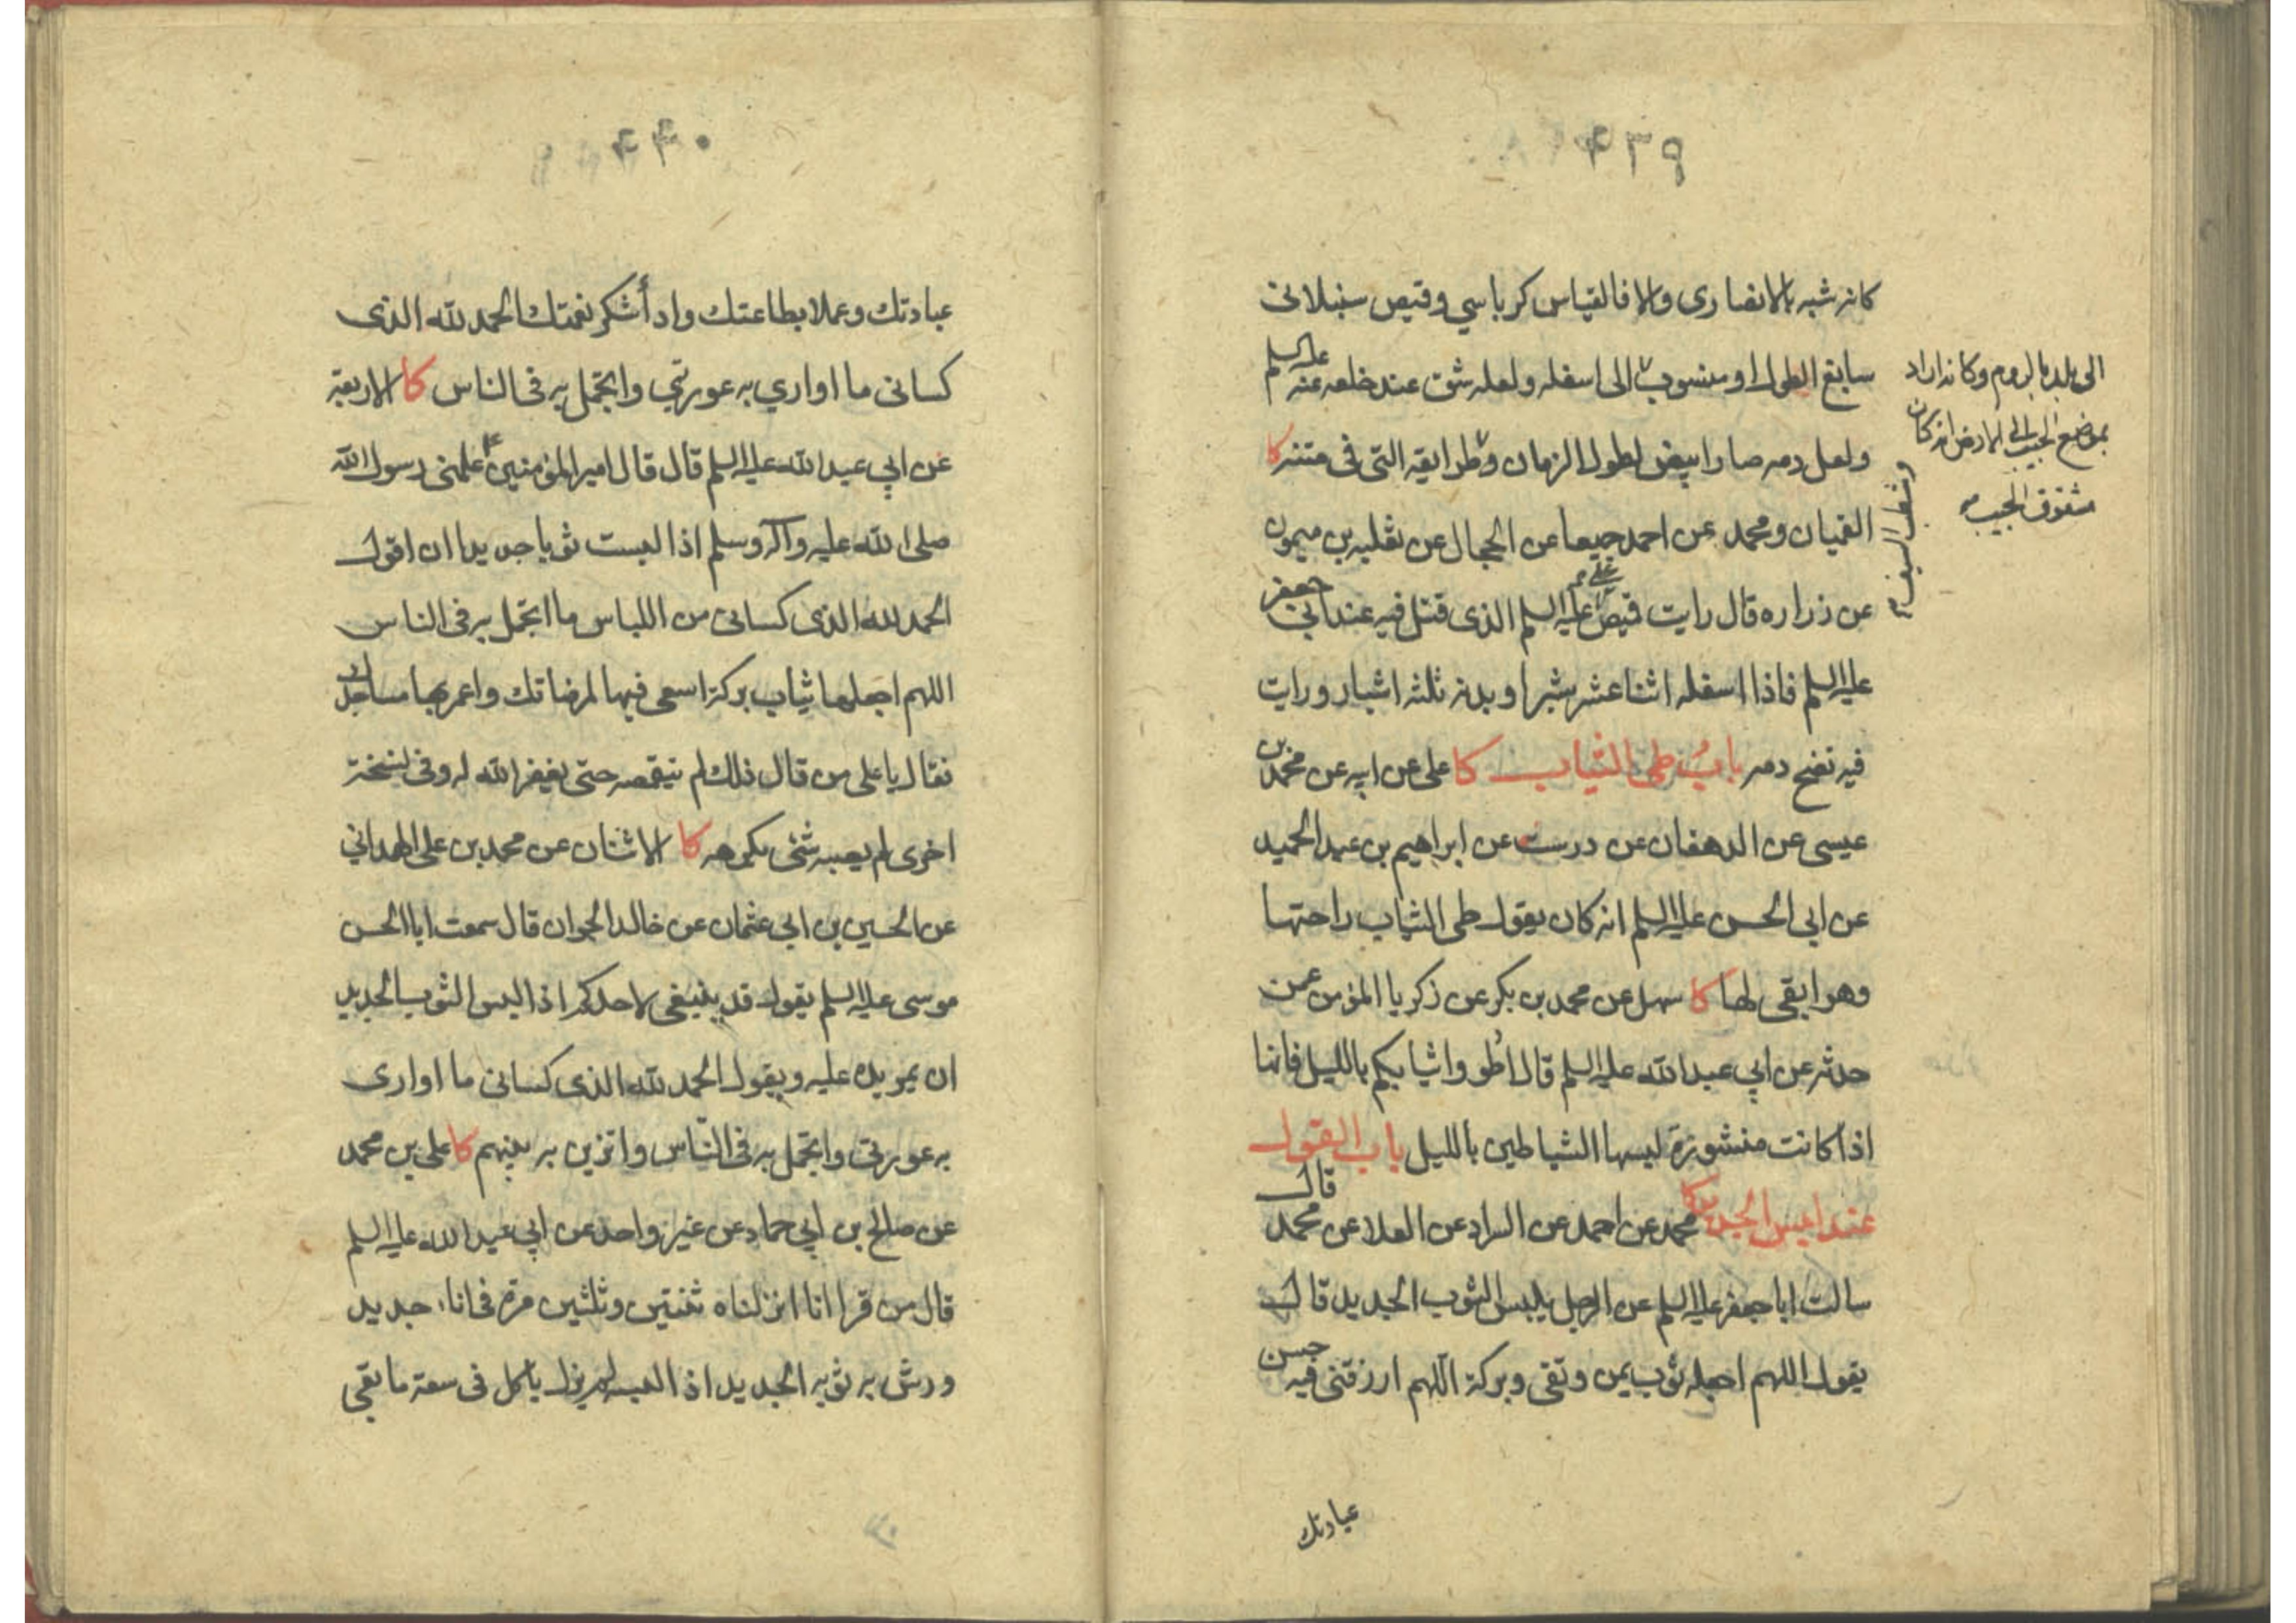 ٤٣٩
كانه شبه بالانصارى والا فالقياس كرباسي وقميص سنبلانى
سابغ الطول او منسوب الى اسفله ولعله شق عند خلعه عنه عليه السلم
الى بلد بالروم وكانه اراد
بموضع الجيب الى الارض انه كان
مشقوق الجيب
ولعل دمه صار ابيض لطول الزمان وطرايقه التى فى متنه كا
القميان ومحمد عن احمد جميعا عن الحجال عن ثعلبه بن ميمون
عن زراره قال رايت قميص على عليه السلم الذى قتل فيه عند ابى جعفر
عليه السلم فاذا اسفله اثنا عشر شبرا وبدنه ثلثه اشبار ورايت
فيه نضح دمه باب طى الثياب كا على عن ابيه عن محمد بن
عيسى عن الدهقان عن درست عن ابراهيم بن عبد الحميد
عن ابى الحسن عليه السلم انه كان يقول طى الثياب راحتها
وهو ابقى لها كا سهل عن محمد بن بكر عن زكريا المؤمن عمن
حدثه عن ابي عبد الله عليه السلم قال اطووا ثيابكم بالليل فانها
اذا كانت منشورة لبسها الشياطين بالليل باب القول
عند لبس الجديد كا محمد عن احمد عن السراد عن العلا عن محمد قال
سالت ابا جعفر عليه السلم عن الرجل يلبس الثوب الجديد قال
يقول اللهم اجعله ثوب يمن وتقى وبركة اللهم ارزقنى فيه حسن
عبادتك
٤٤٠
عبادتك وعملا بطاعتك واد أشكر نعمتك الحمد لله الذى
كسانى ما اواري به عورتي واتجمل به فى الناس كا الاربعة
عن ابي عبد الله عليه السلم قال قال امير المؤمنين ع علمنى رسول الله
صلى الله عليه وآله وسلم اذا لبست ثوبا جديدا ان اقول
الحمد لله الذى كسانى من اللباس ما اتجمل به فى الناس
اللهم اجعلها ثياب بركة اسعى فيها لمرضاتك واعمر بها مساجدك
فقال يا على من قال ذلك لم يتقمصه حتى يغفر الله له وفى نسخة
اخرى لم يصبه شئ يكرهه كا الاثنان عن محمد بن على الهمدانى
عن الحسين بن ابى عثمان عن خالد الجوان قال سمعت ابا الحسن
موسى عليه السلم يقول قد ينبغى لاحدكم اذا لبس الثوب الجديد
ان يمر يده عليه ويقول الحمد لله الذى كسانى ما اوارى
به عورتى واتجمل به فى الناس واتزين به بينهم كا على بن محمد
عن صالح بن ابي حماد عن غير واحد عن ابي عبد الله عليه السلم
قال من قرا انا انزلناه ثنتين وثلثين مرة فى اناء جديد
ورش به ثوبه الجديد اذا لبسه لم يزل ياكل فى سعة ما بقى